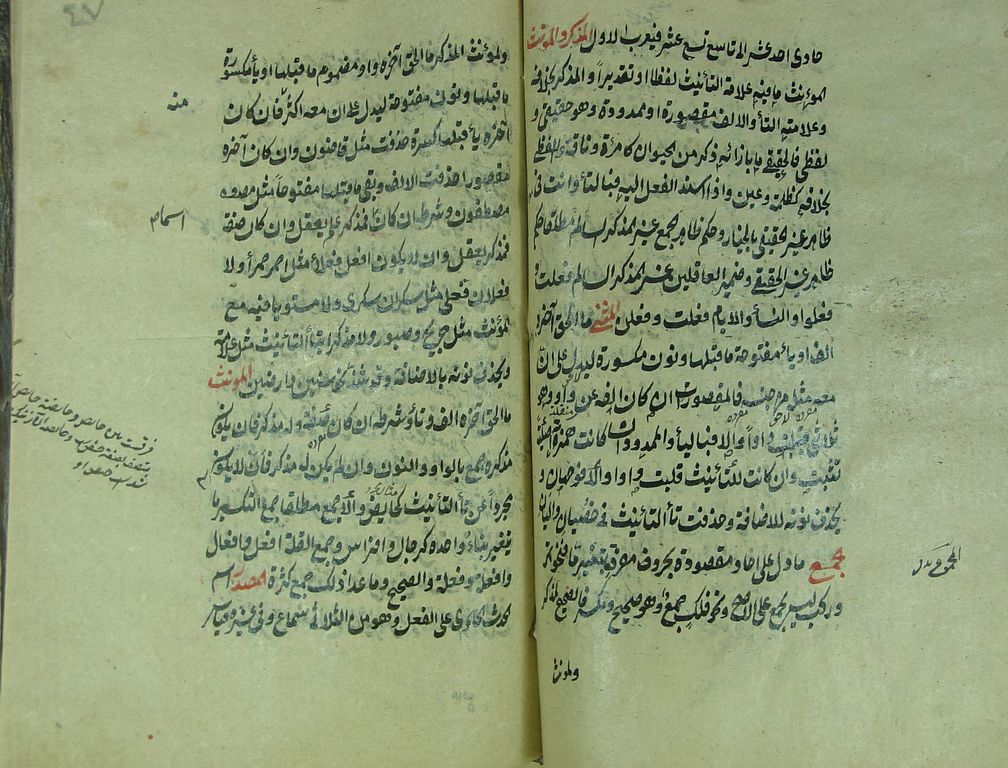 حادى احد عشر الى تاسع تسع عشر فيعرب الاول المذكر والمؤنث
المؤنث ما فيه علامة التأنيث لفظا او تقديرا والمذكر بخلافه
وعلامته التأ والالف مقصورة او ممدودة وهو حقيقى و
لفظى فالحقيقى ما بازائه ذكر من الحيوان كامرأة وناقة واللفظى
بخلافه كظلمة وعين واذا اسند الفعل اليه فبالتأ وانت فى
ظاهر غير الحقيقى بالخيار وحكم ظاهر الجمع غير المذكر السالم مطلقا حكم
ظاهر غير الحقيقى وضمير العاقلين غير المذكر السالم فعلت و
فعلوا والنسأ والايام فعلت وفعلن المثنى ما الحق آخره
الف او يأ مفتوحة ما قبلها ونون مكسورة ليدل على ان
معه مثله من جنسه فالمقصور ان كان الفه عن واو وهو
ثلاثى قلبت واوا والا فباليأ والممدود ان كانت همزته اصلية
تثبت وان كانت للتأنيث قلبت واوا والا فوجهان و
يحذف نونه للاضافة وحذفت تأ التأنيث فى خصيان واليان
المجموع ما دل على احاد مقصودة بحروف مفرده بتغيير ما فنحو تمر
وركب ليس بجمع على الاصح ونحو فلك جمع وهو صحيح ومكسر فالصحيح لمذكر
ولمؤنث
ولمؤنث المذكر ما الحق آخره واو مضموم ما قبلها او يأ مكسورة
ما قبلها ونون مفتوحة ليدل على ان معه اكثر فان كان
آخره يأ قبلها كسرة حذفت مثل قاضون وان كان آخره
مقصورا حذفت الالف وبقى ما قبلها مفتوحا مثل
مصطفون وشرطه ان كان فمذكر علم يعقل وان كان صفة
فمذكر يعقل وان لا يكون افعل فعلأ مثل احمر حمرأ ولا
فعلان فعلى مثل سكران سكرى ولا مستويا فيه مع
المؤنث مثل جريح وصبور ولا مذكرا بتأ التأنيث مثل علامة
ويحذف نونه بالاضافة وقد شذ نحو سنين وارضين المؤنث
ما الحق آخره الف وتأ وشرطه ان كان صفة وله مذكر فان يكون
مذكره جمع بالواو والنون وان لم يكن له مذكر فان لا يكون
مجردا عن تأ التأنيث كحائض والا جمع مطلقا جمع التكسير ما
تغير بنأ واحده كرجال وافراس وجمع القلة افعل وافعال
وافعلة وفعلة والصحيح وما عدا ذلك جمع كثرة المصدر اسم
الحدث الجارى على الفعل وهو من الثلاثى سماع وفى غيره قياس